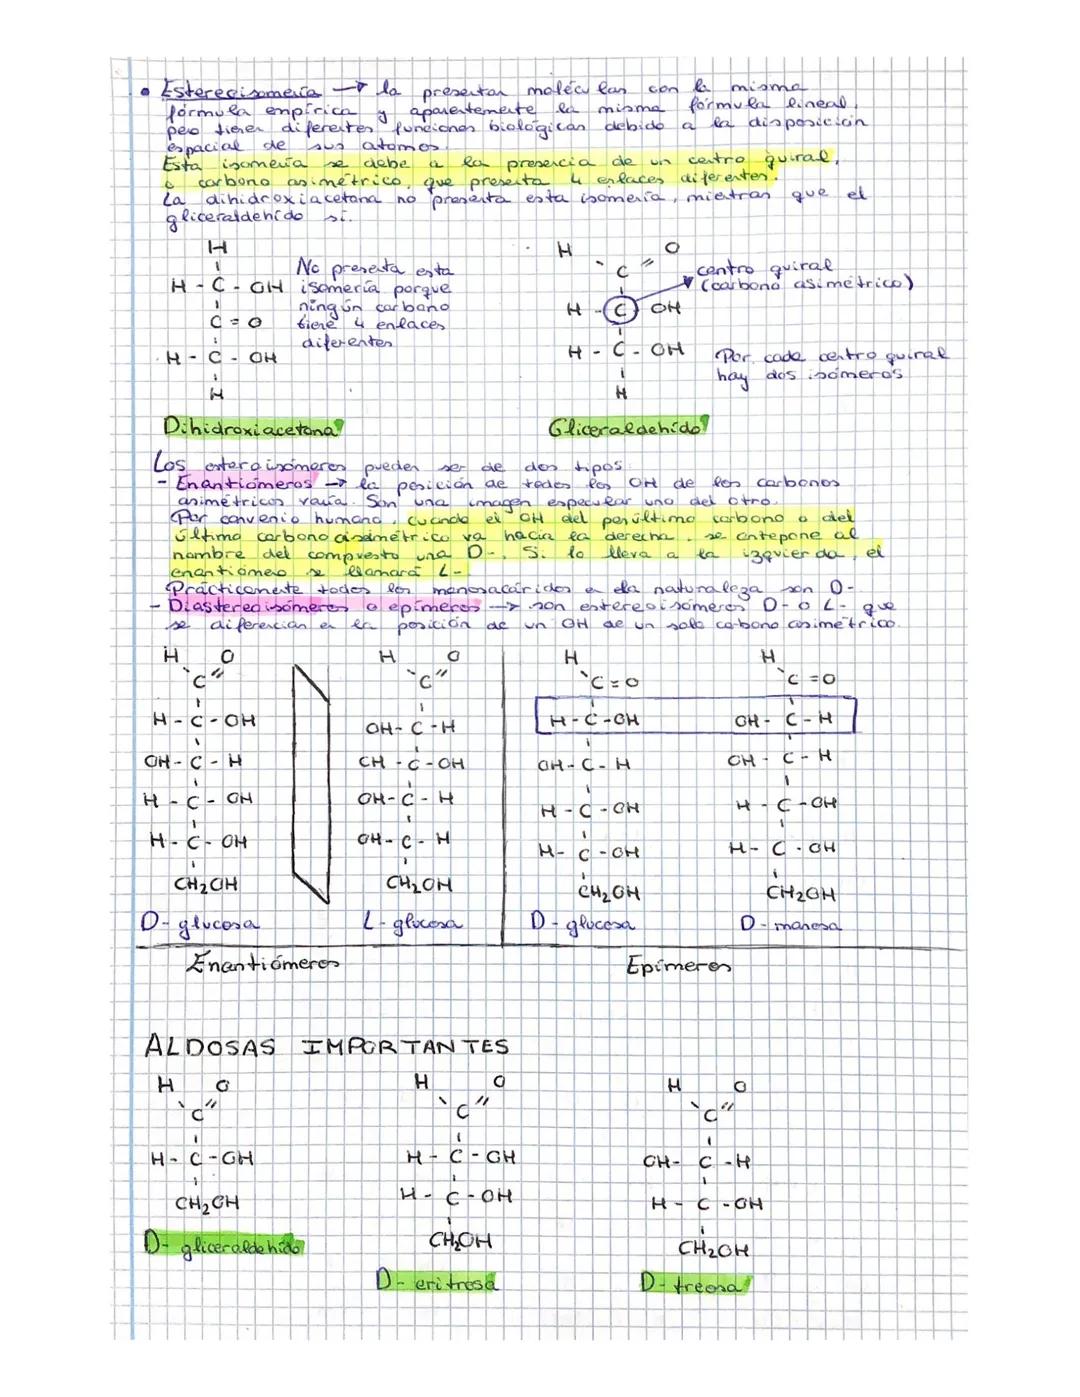 • Estereoisomería → la presentan moléculas con la misma
fórmula empírica y aparentemente la misma fórmula lineal,
pero tienen diferentes funciones biológicas debido a la disposición
espacial de sus atomos.
Esta isomería se debe a la presencia de un centro quiral,
o carbono asimétrico, que presenta 4 enlaces diferentes.
La dihidroxiacetona no presenta esta isomería, mientras que el
gliceraldehído sí.
H
H - C - OH
C = O
H - C - OH
H
No presenta esta
isomería porque
ningún carbono
tiene 4 enlaces
diferentes
Dihidroxiacetona
H O
C
H - C OH
H - C - OH
H
centro quiral
(carbono asimétrico)
Por cada centro quiral
hay dos isómeros
Gliceraldehído
Los esteroisómeros pueden ser de dos tipos:
- Enantiómeros → la posición de todos los OH de los carbonos
asimétricos varía. Son una imagen especular uno del otro.
Por convenio humano, cuando el OH del penúltimo carbono o del
último carbono asimétrico va hacia la derecha, se antepone al
nombre del compuesto una D-. Si lo lleva a la izquierda, el
enantiómero se llamará L-.
Prácticamente todos los monosacáridos en la naturaleza son D-
- Diastereoisómeros o epímeros → son estereoisómeros D- o L- que
se diferencian en la posición de un OH de un solo carbono asimétrico.
H O
C
H - C - OH
OH - C - H
H - C - OH
H - C - OH
CH₂OH
D- glucosa
H O
C
OH - C - H
CH - C - OH
OH - C - H
OH - C - H
CH₂OH
L- glucosa
Enantiómeros
H
C = O
H - C - OH
OH - C - H
H - C - OH
H - C - OH
CH₂OH
D- glucosa
H
C = O
OH - C - H
OH - C - H
H - C - OH
H - C - OH
CH₂OH
D- manosa
Epímeros
ALDOSAS IMPORTANTES
H O
C
H - C - OH
CH₂OH
D- gliceraldehído
H O
C
H - C - OH
H - C - OH
CH₂OH
D- eritrosa
H O
C
OH - C - H
H - C - OH
CH₂OH
D- treosa